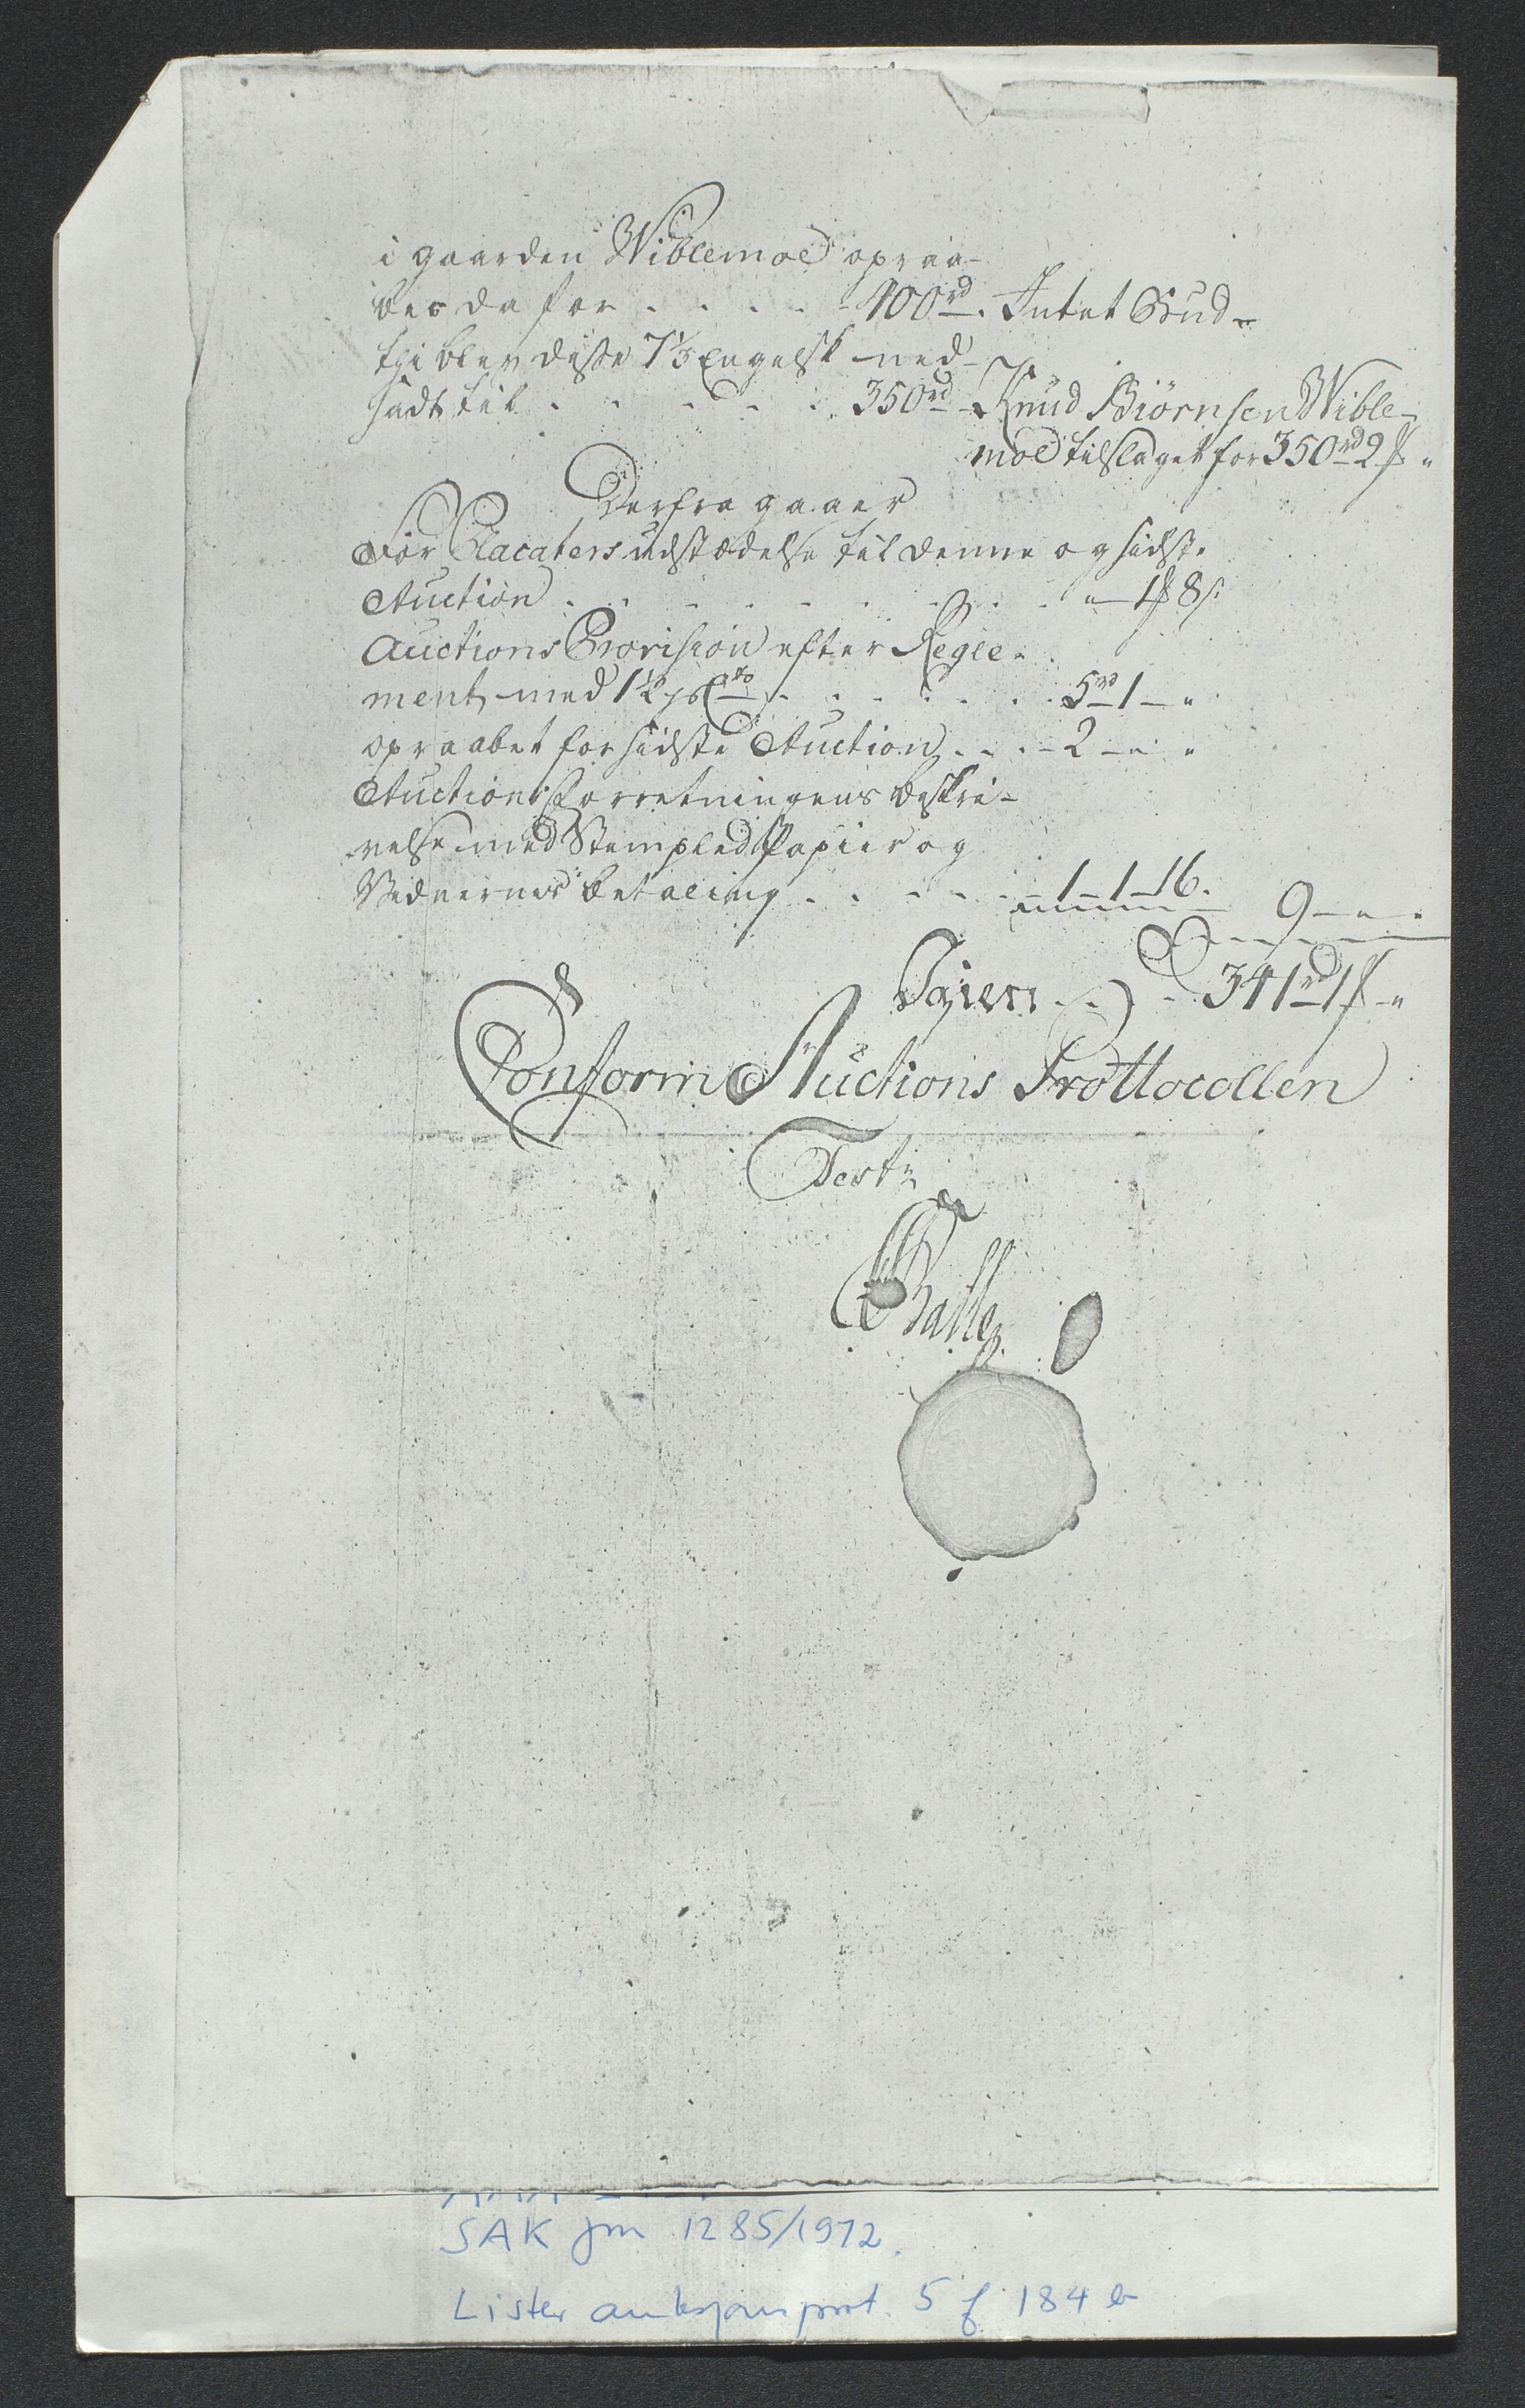 i gaarden Wiblemoe opraa-
bes da for . . . . . 400rd. Intet Bud-
thi blev disse 7 1/3 Engelsk ned-
sadt til . . . . . . 350rd - Knud Biörnsen Wible-
moe tilslaget for 350rd 2 f "
Derfra gaaer
For Placaters udstædelse til denne og sidste
Auction . . . . . . . . . . " - 1 f 8 s:
Auctions Provision efter Regle-
ment, med 1 1/2 pCto . . . . . . 5rd 1 - "
opraabet for sidste Auction . . . - 2 - " - "
Auctionsforretningens beskri-
velse med Stempled Papiir og
Vidnernes betaling . . . . . 1 - 1 - 16. 9 - " - "
Igien . . . 341rd 1 f - "
Conform Auctions Prottocollen
Test:
Balle
SAK jnr 1285/1972.
Lister auksjonsprot. 5 f 184 b